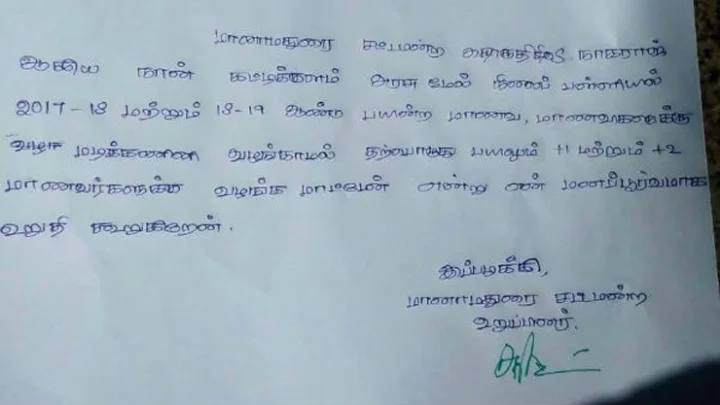 மானாமதுரை சட்டமன்ற தொகுதி S. நாகராஜ்
ஆகிய நான் அரசு மேல் நிலைப் பள்ளியில்
2017-18 மற்றும் 18-19 ஆண்டு பயின்ற மாணவ, மாணவிகளுக்கு
மடிக்கணினி வழங்காமல் தற்பொழுது பயிலும் +1 மற்றும் +2
மாணவர்களுக்கு வழங்க மாட்டேன் என்று என் மனபூர்வமாக
உறுதி கூறுகிறேன்.
இப்படிக்கு,
மானாமதுரை சட்டமன்ற
உறுப்பினர்.